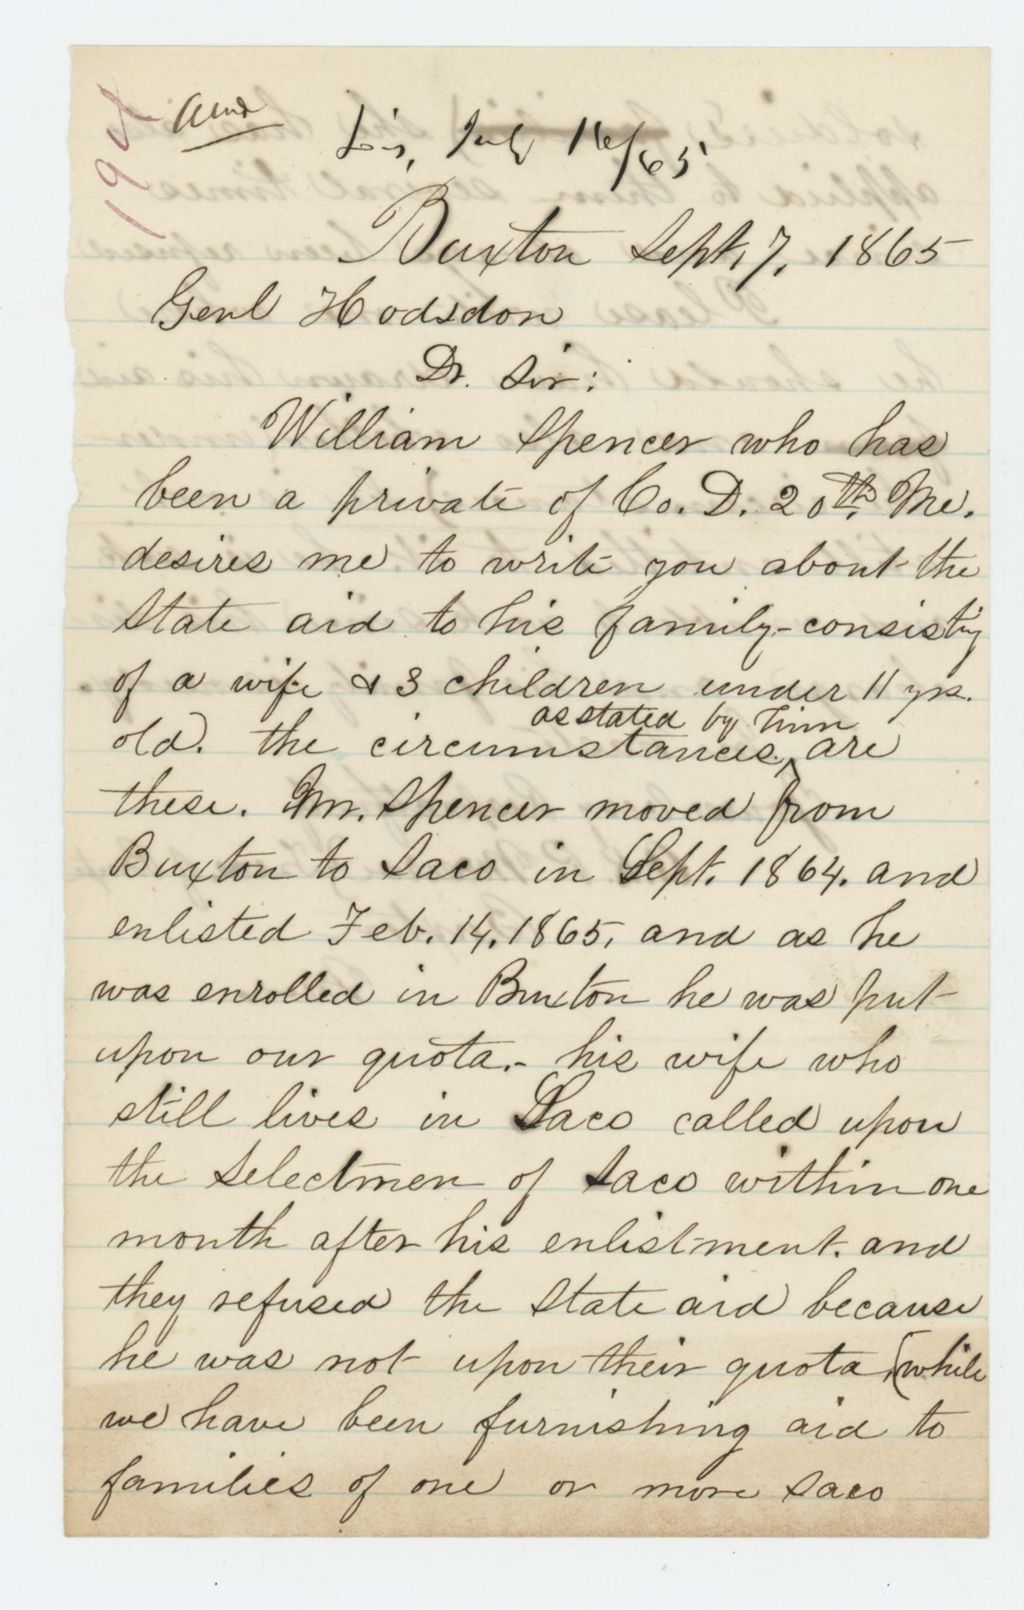 194
Dis, July 16/65
Buxton Sept, 7, 1865
Genl Hodsdon
Dr. Sir:
William Spencer who has
been a private of Co. D. 20th. Me.
desires me to write you about the
State aid to his family - consisting
of a wife & 3 children under 11 yrs.
old. the circumstances, as stated by him are
these. Mr. Spencer moved from
Buxton to Saco in Sept. 1864. and
enlisted Feb. 14. 1865, and as he
was enrolled in Buxton he was put
upon our quota. - his wife who
still lives in Saco called upon
the Selectmen of Saco within one
month after his enlistment. and
they refused the State aid because
he was not upon their quota, (while
we have been furnishing aid to
families of one or more Saco